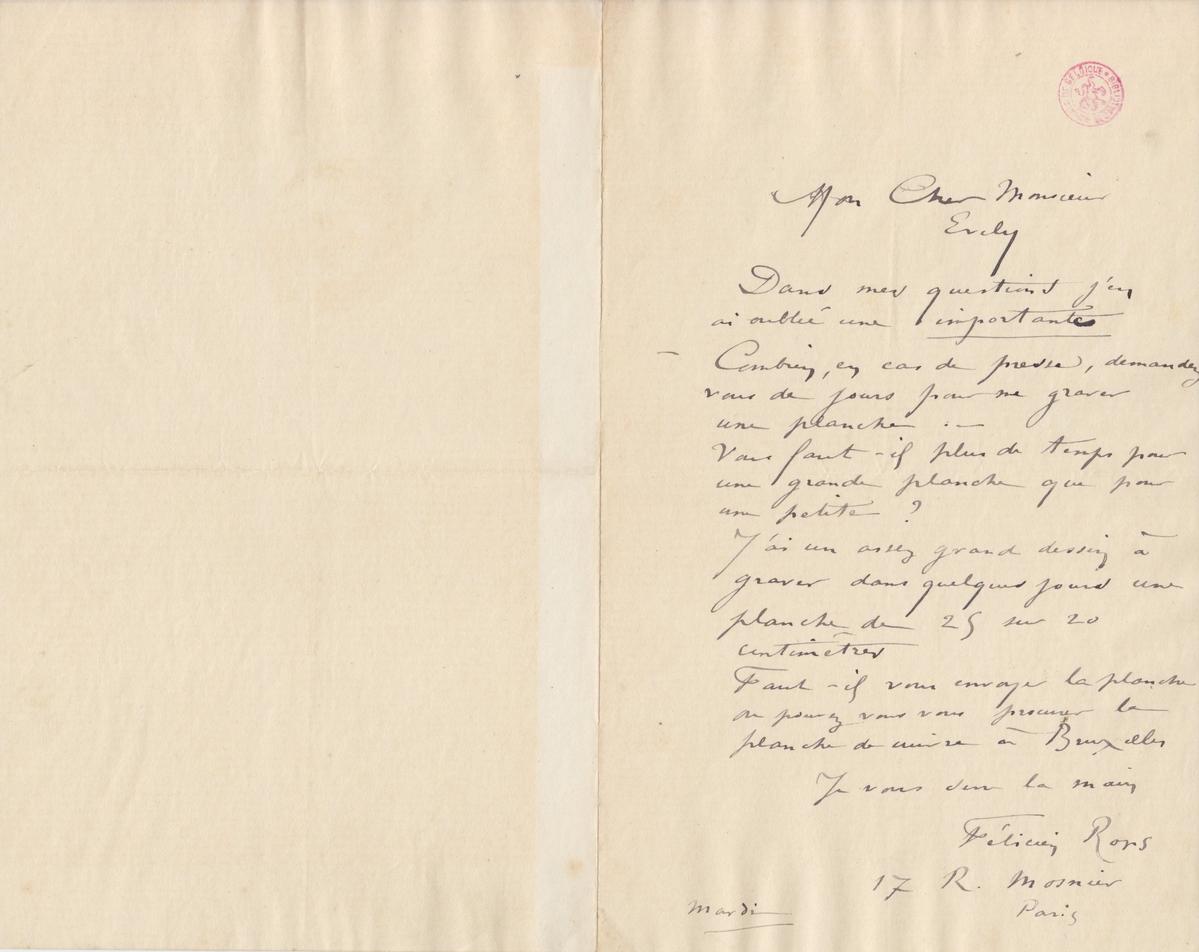 Mon Cher Monsieur
Evely
Dans mes questions j'en
ai oublié une importante
– Combien, en cas de presse, demandez
vous de jours pour me graver
une planche. –
Vous faut-il plus de temps pour
une grande planche que pour
une petite ?
J'ai un assez grand dessin à
graver dans quelques jours une
planche de 25 sur 20
centimètres
Faut-il vous envoyer la planche
ou pouvez vous vous procurer la
planche de cuivre à Bruxelles
Je vous serre la main
Félicien Rops
17 R. Mosnier
Mardi Paris